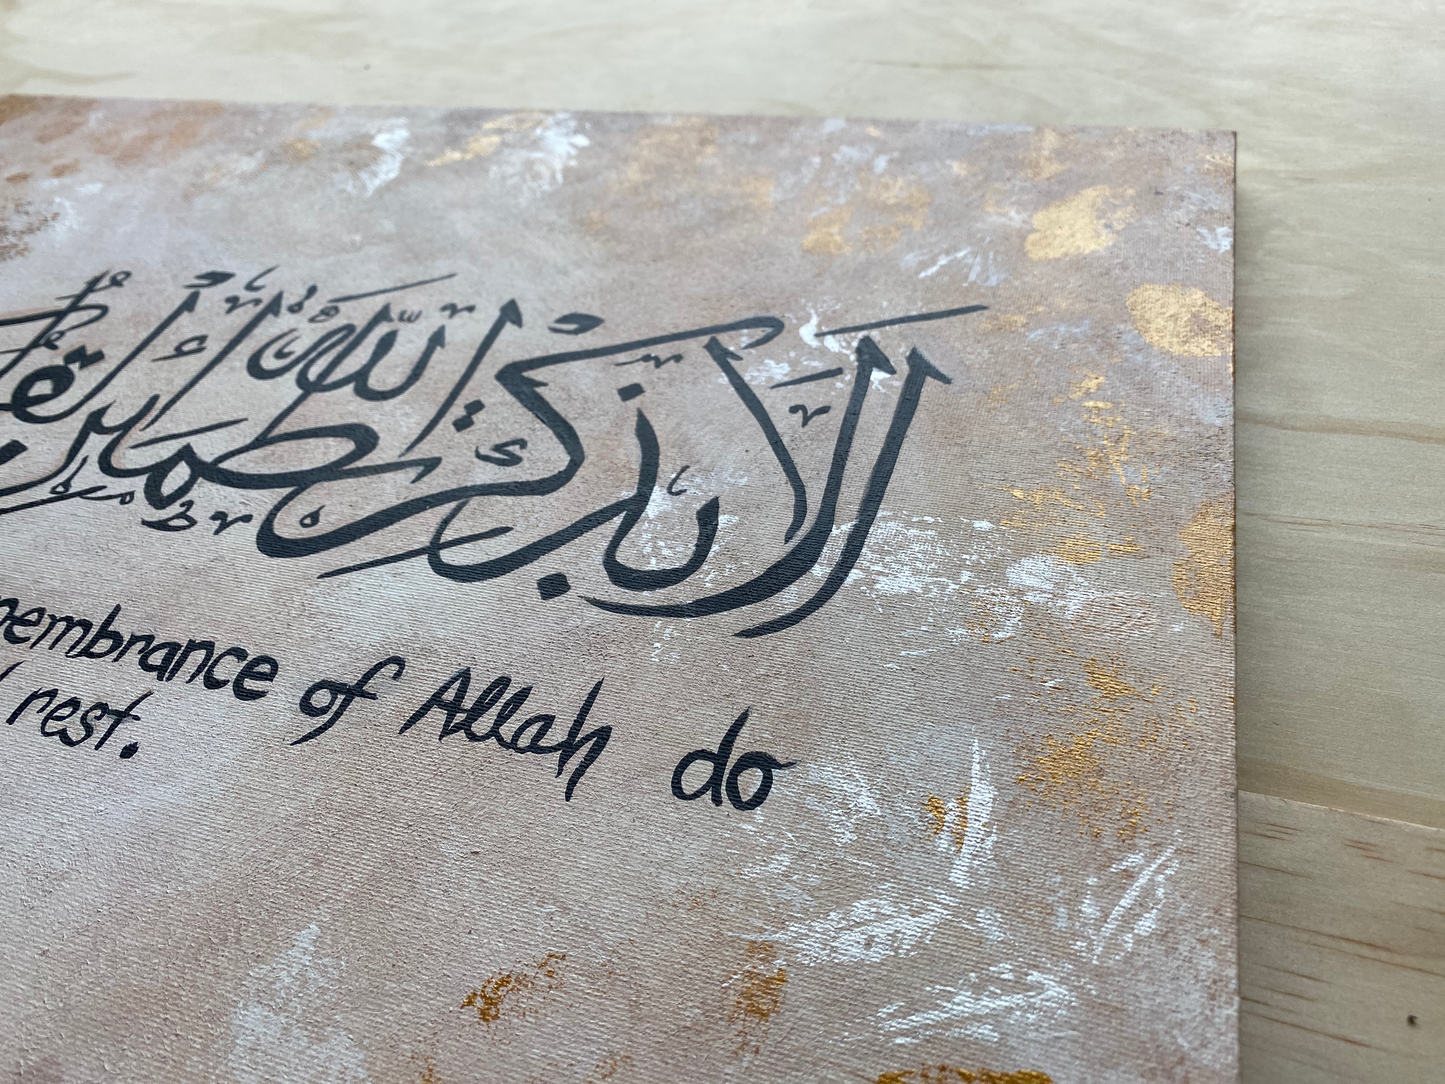 ألا بذكر الله تطمئن القلوب
membrance of Allah do
rest.